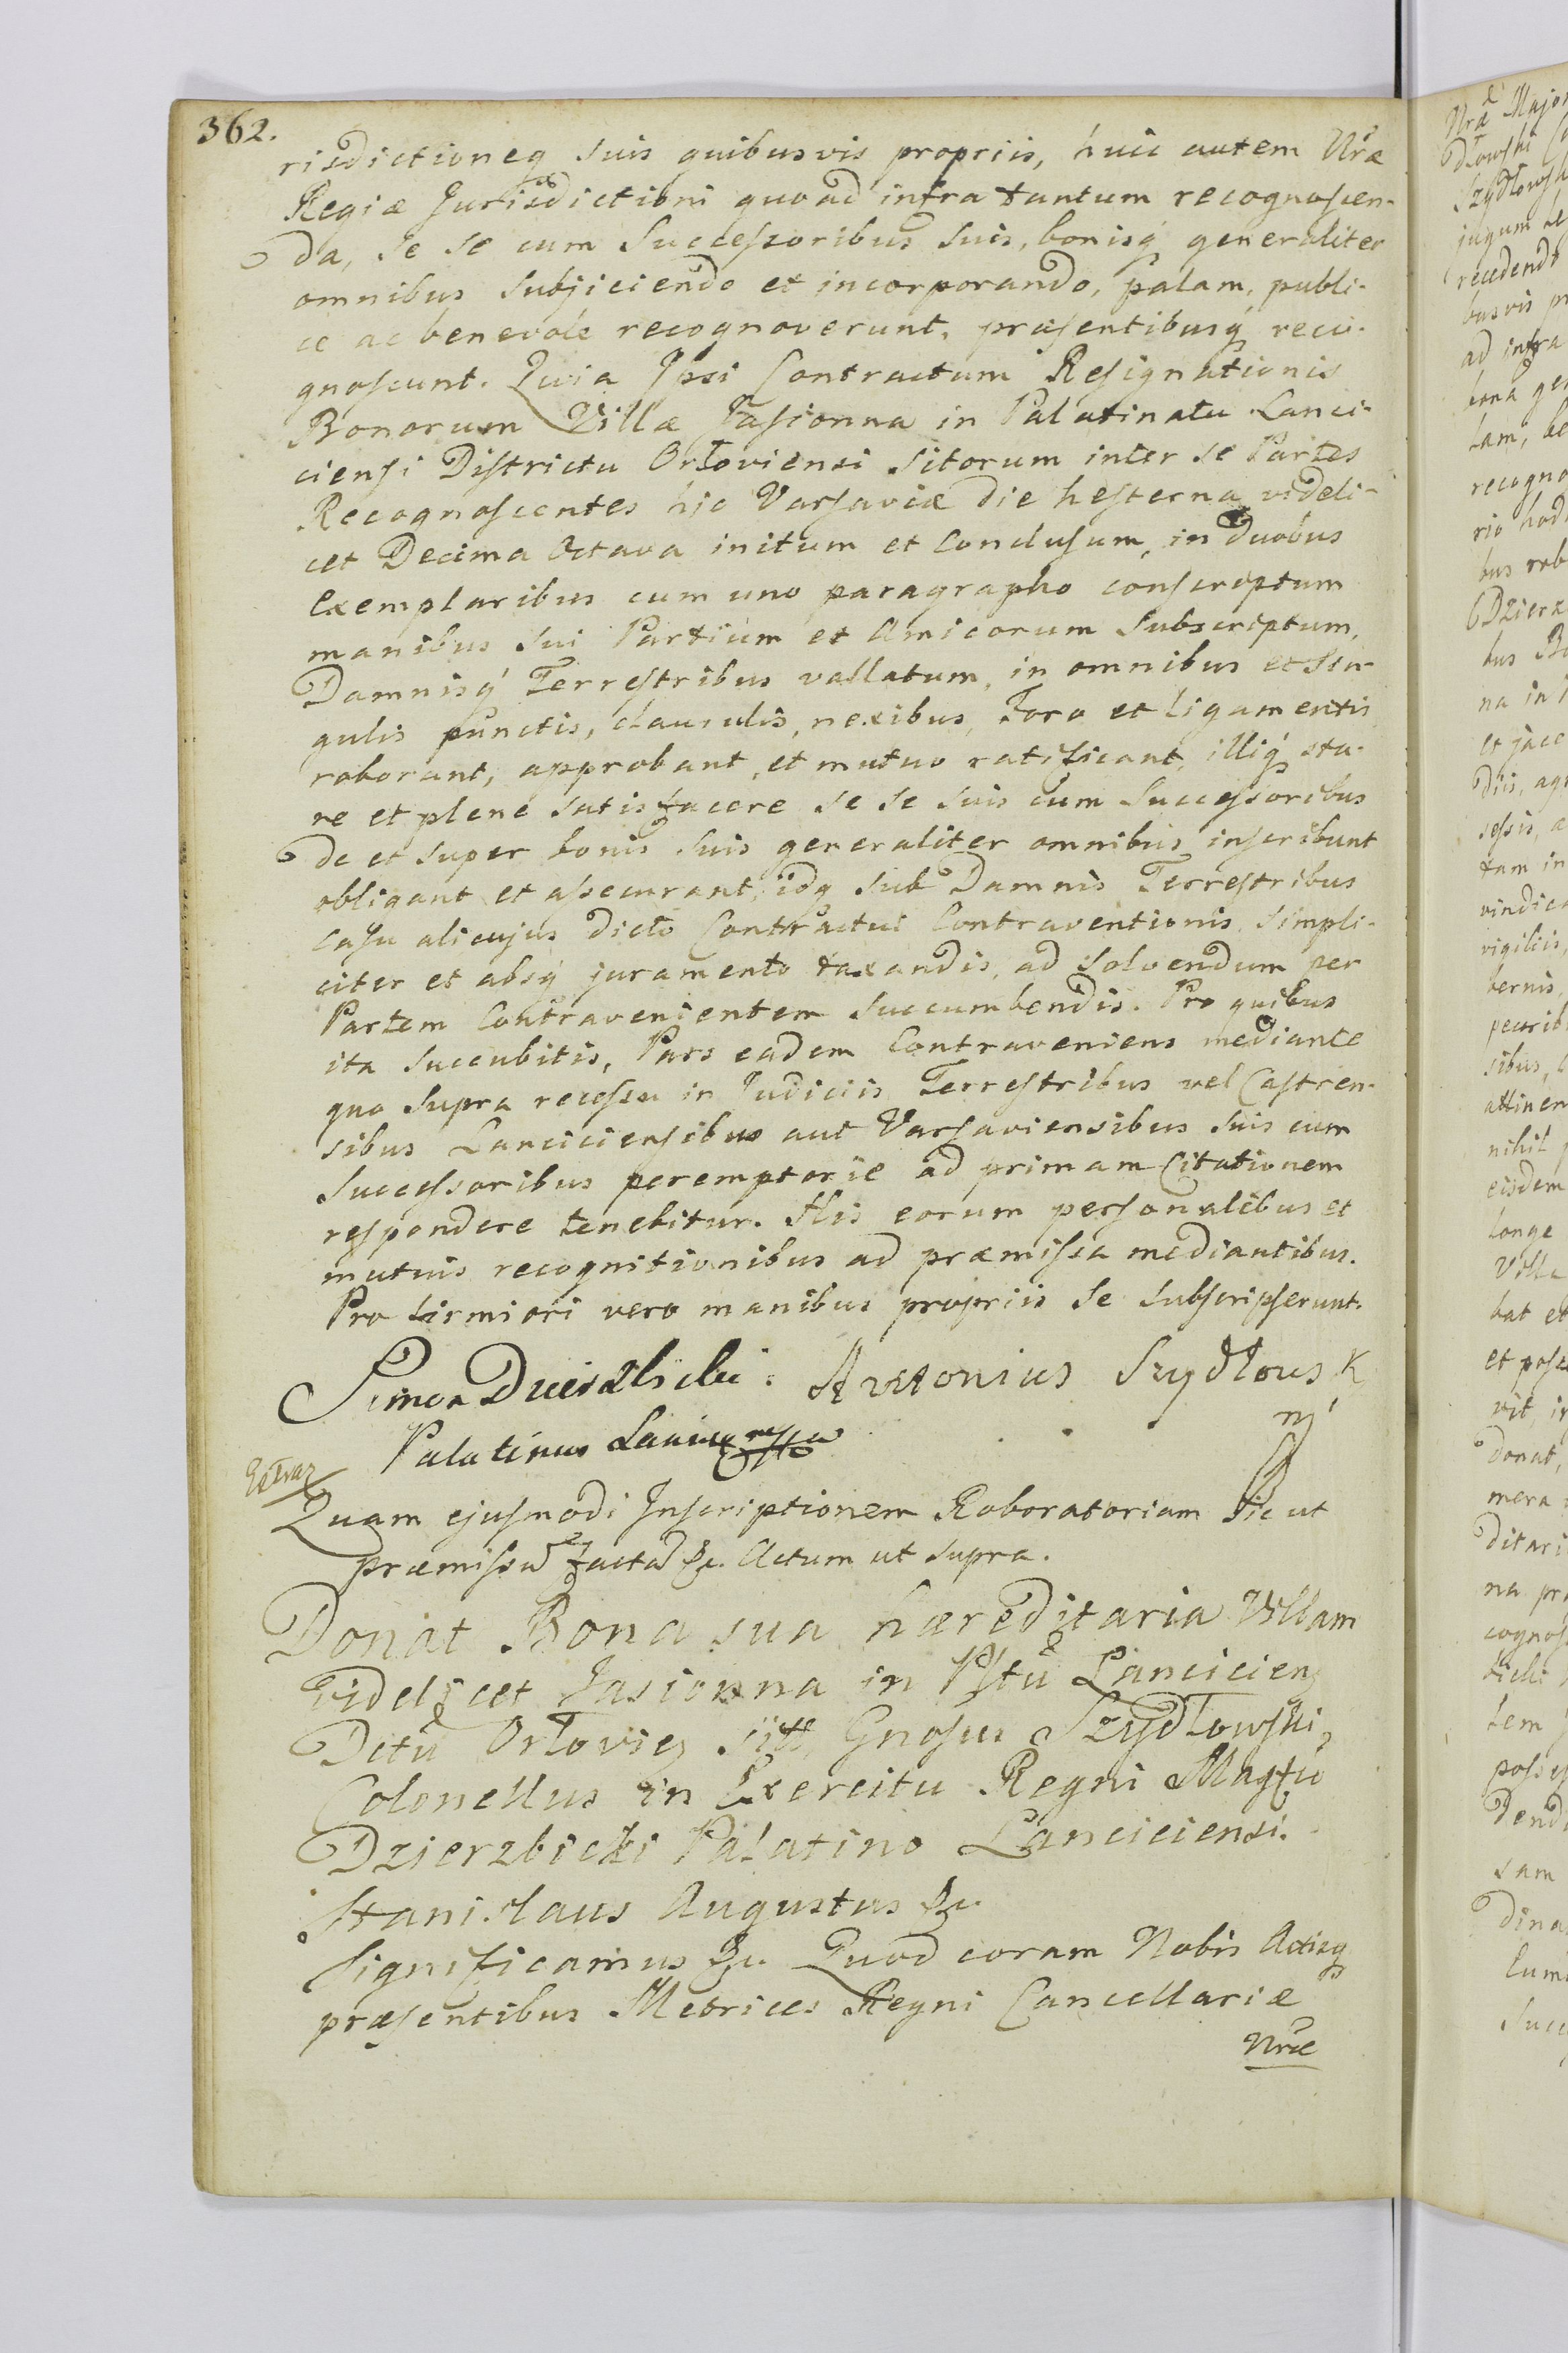 362.
risdictioneq suis quibusvis propriis, huic autem Nr̃æ
Regiæ Jurisdictioni quoad infra tantum recognoscen-
da, se se cum Successoribus suis, bonisq́ generaliter
omnibus subjiciendo et incorporando, palam, publi-
ce ac benevole recognoverunt, præsentibusq́ reco-
gnoscunt. Quia Ipsi Contractum Resignationis
Bonorum Villæ Jasionna in Palatinatu Lanci-
ciensi Districtu Orłoviensi sitorum inter se Partes
Recognoscentes hic Varsaviæ die hesterna videli-
cet Decima Octava initum et Conclusum, in duobus
Exemplaribus cum uno paragrapho conscriptum
manibus sui Partium et Amicorum Subscriptum,
Damnisq́ Terrestribus vallatum, in omnibus et sin-
gulis punctis, clausulis, nexibus, Foro et ligamentis
roborant, approbant, et mutuo ratificant, illiq́ sta-
re et plené satisfacere se se suis cum Successoribus
de et super bonis suis generaliter omnibus inscribunt
obligant et assecurant, idq sub Damnis Terrestribus
Casu alicujus dicto Contractui Contraventionis simpli-
citer et absq́ juramento taxandis, ad solvendum per
Partem Contravenientem succumbendis. Pro quibus
ita succubitis, Pars eadem Contraveniens mediante
quo supra recessu in Judiciis Terrestribus vel Castren-
sibus Lanciciensibus aut Varsaviensibus suis cum
Successoribus peremptorie ad primam Citationem
respondere tenebitur. His eorum personalibus et
mutuis recognitionibus ad præmissa mediantibus.
Pro firmiori vero manibus propriis se subscripserunt.
Simon Dzierzbicki. Antonius Szydłowsk
Palatinus
Quam ejusmodi Inscriptionem Roboratoriam sic ut
præmissū factā &c. Actum ut supra.
Donat Bona sua hæreditaria Villam
videlicet Jasionna in Płtū Lancicien
Dctū Orłovien sitt, Gnosus Szydłowski,
Colonellus in Exercitu Regni Magfco
Dzierzbicki Palatino Lanciciensi.
Stanislaus Augustus &c.
Significamus &c. Quod coram Nobis Actisq
præsentibus Metrices Regni Cancellariæ
Nr̃æ